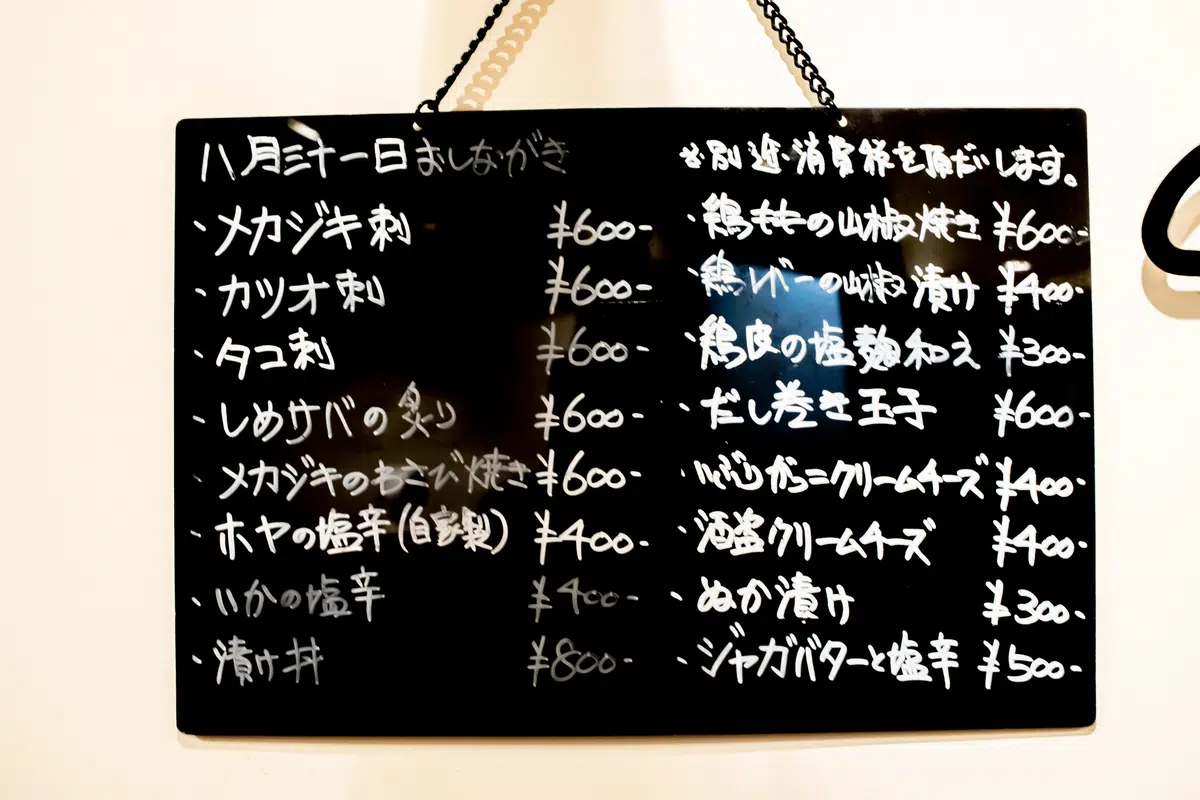 八月三十一日 おしながき
・メカジキ刺 ¥600-
・カツオ刺 ¥600-
・タコ刺 ¥600-
・しめサバの炙り ¥600-
・メカジキのわさび焼き ¥600-
・ホヤの塩辛(自家製) ¥400-
・いかの塩辛 ¥400-
・漬け丼 ¥800-
※別途消費税を頂だいします。
・鶏ももの山椒焼き ¥600-
・鶏レバーの山椒漬け ¥400-
・鶏皮の塩麹和え ¥300-
・だし巻き玉子 ¥600-
・いぶりがっこクリームチーズ ¥400-
・酒盗クリームチーズ ¥400-
・ぬか漬け ¥300-
・ジャガバターと塩辛 ¥500-